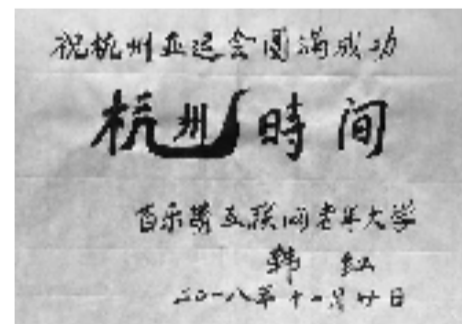 祝杭州亚运会圆满成功
杭州時间
音乐梦互联网老年大学
韩红
二〇一八年十一月廿日